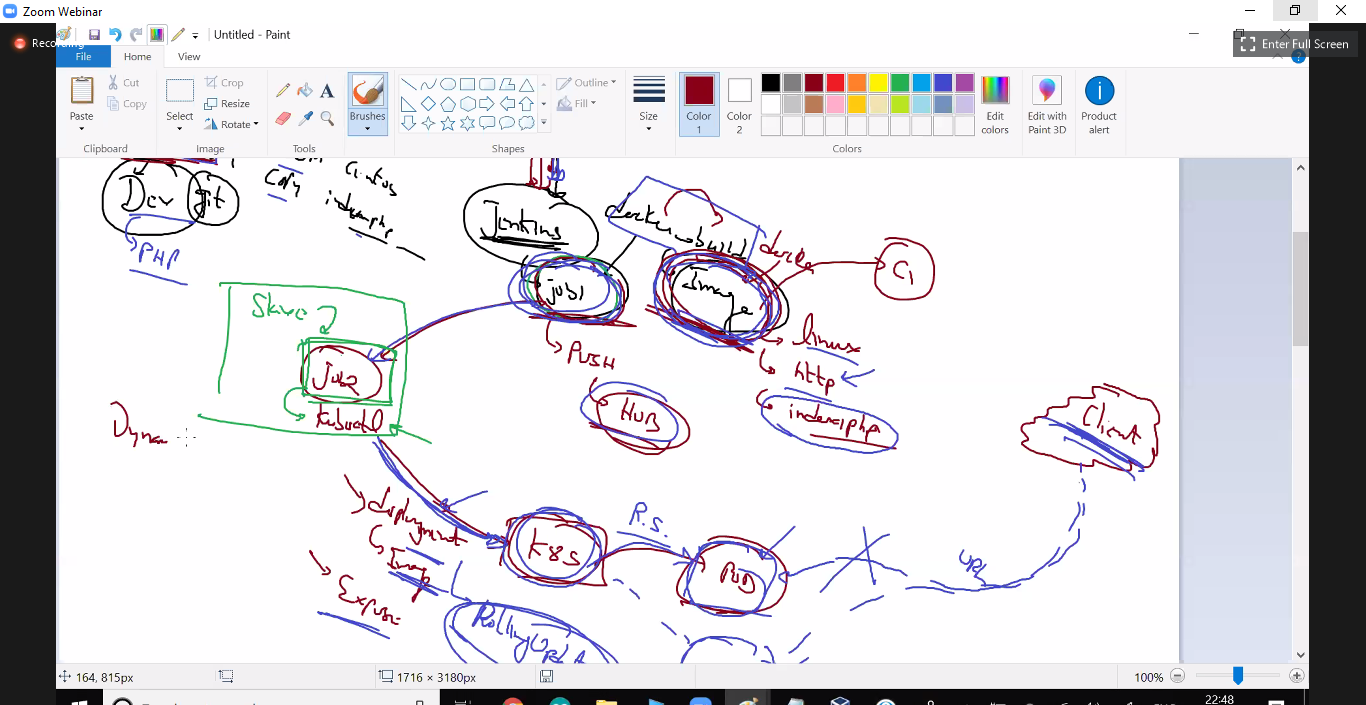 Zoom Webinar
Recording
Untitled - Paint
Enter Full Screen
File
Home
View
Paste
Cut
Copy
Clipboard
Select
Crop
Resize
Rotate
Image
Tools
Brushes
Shapes
Outline
Fill
Size
Color 1
Color 2
Colors
Edit colors
Edit with Paint 3D
Product alert
Dev
git
PHP
Copy
Jenkins
docker build
job1
Image
C1
PUSH
HUB
linux
http
index.php
Client
Slave
Job2
kubectl
Dyna
deployment
Image
Expose
K8S
R.S.
POD
URL
Rolling
164, 815px
1716 × 3180px
100%
22:48